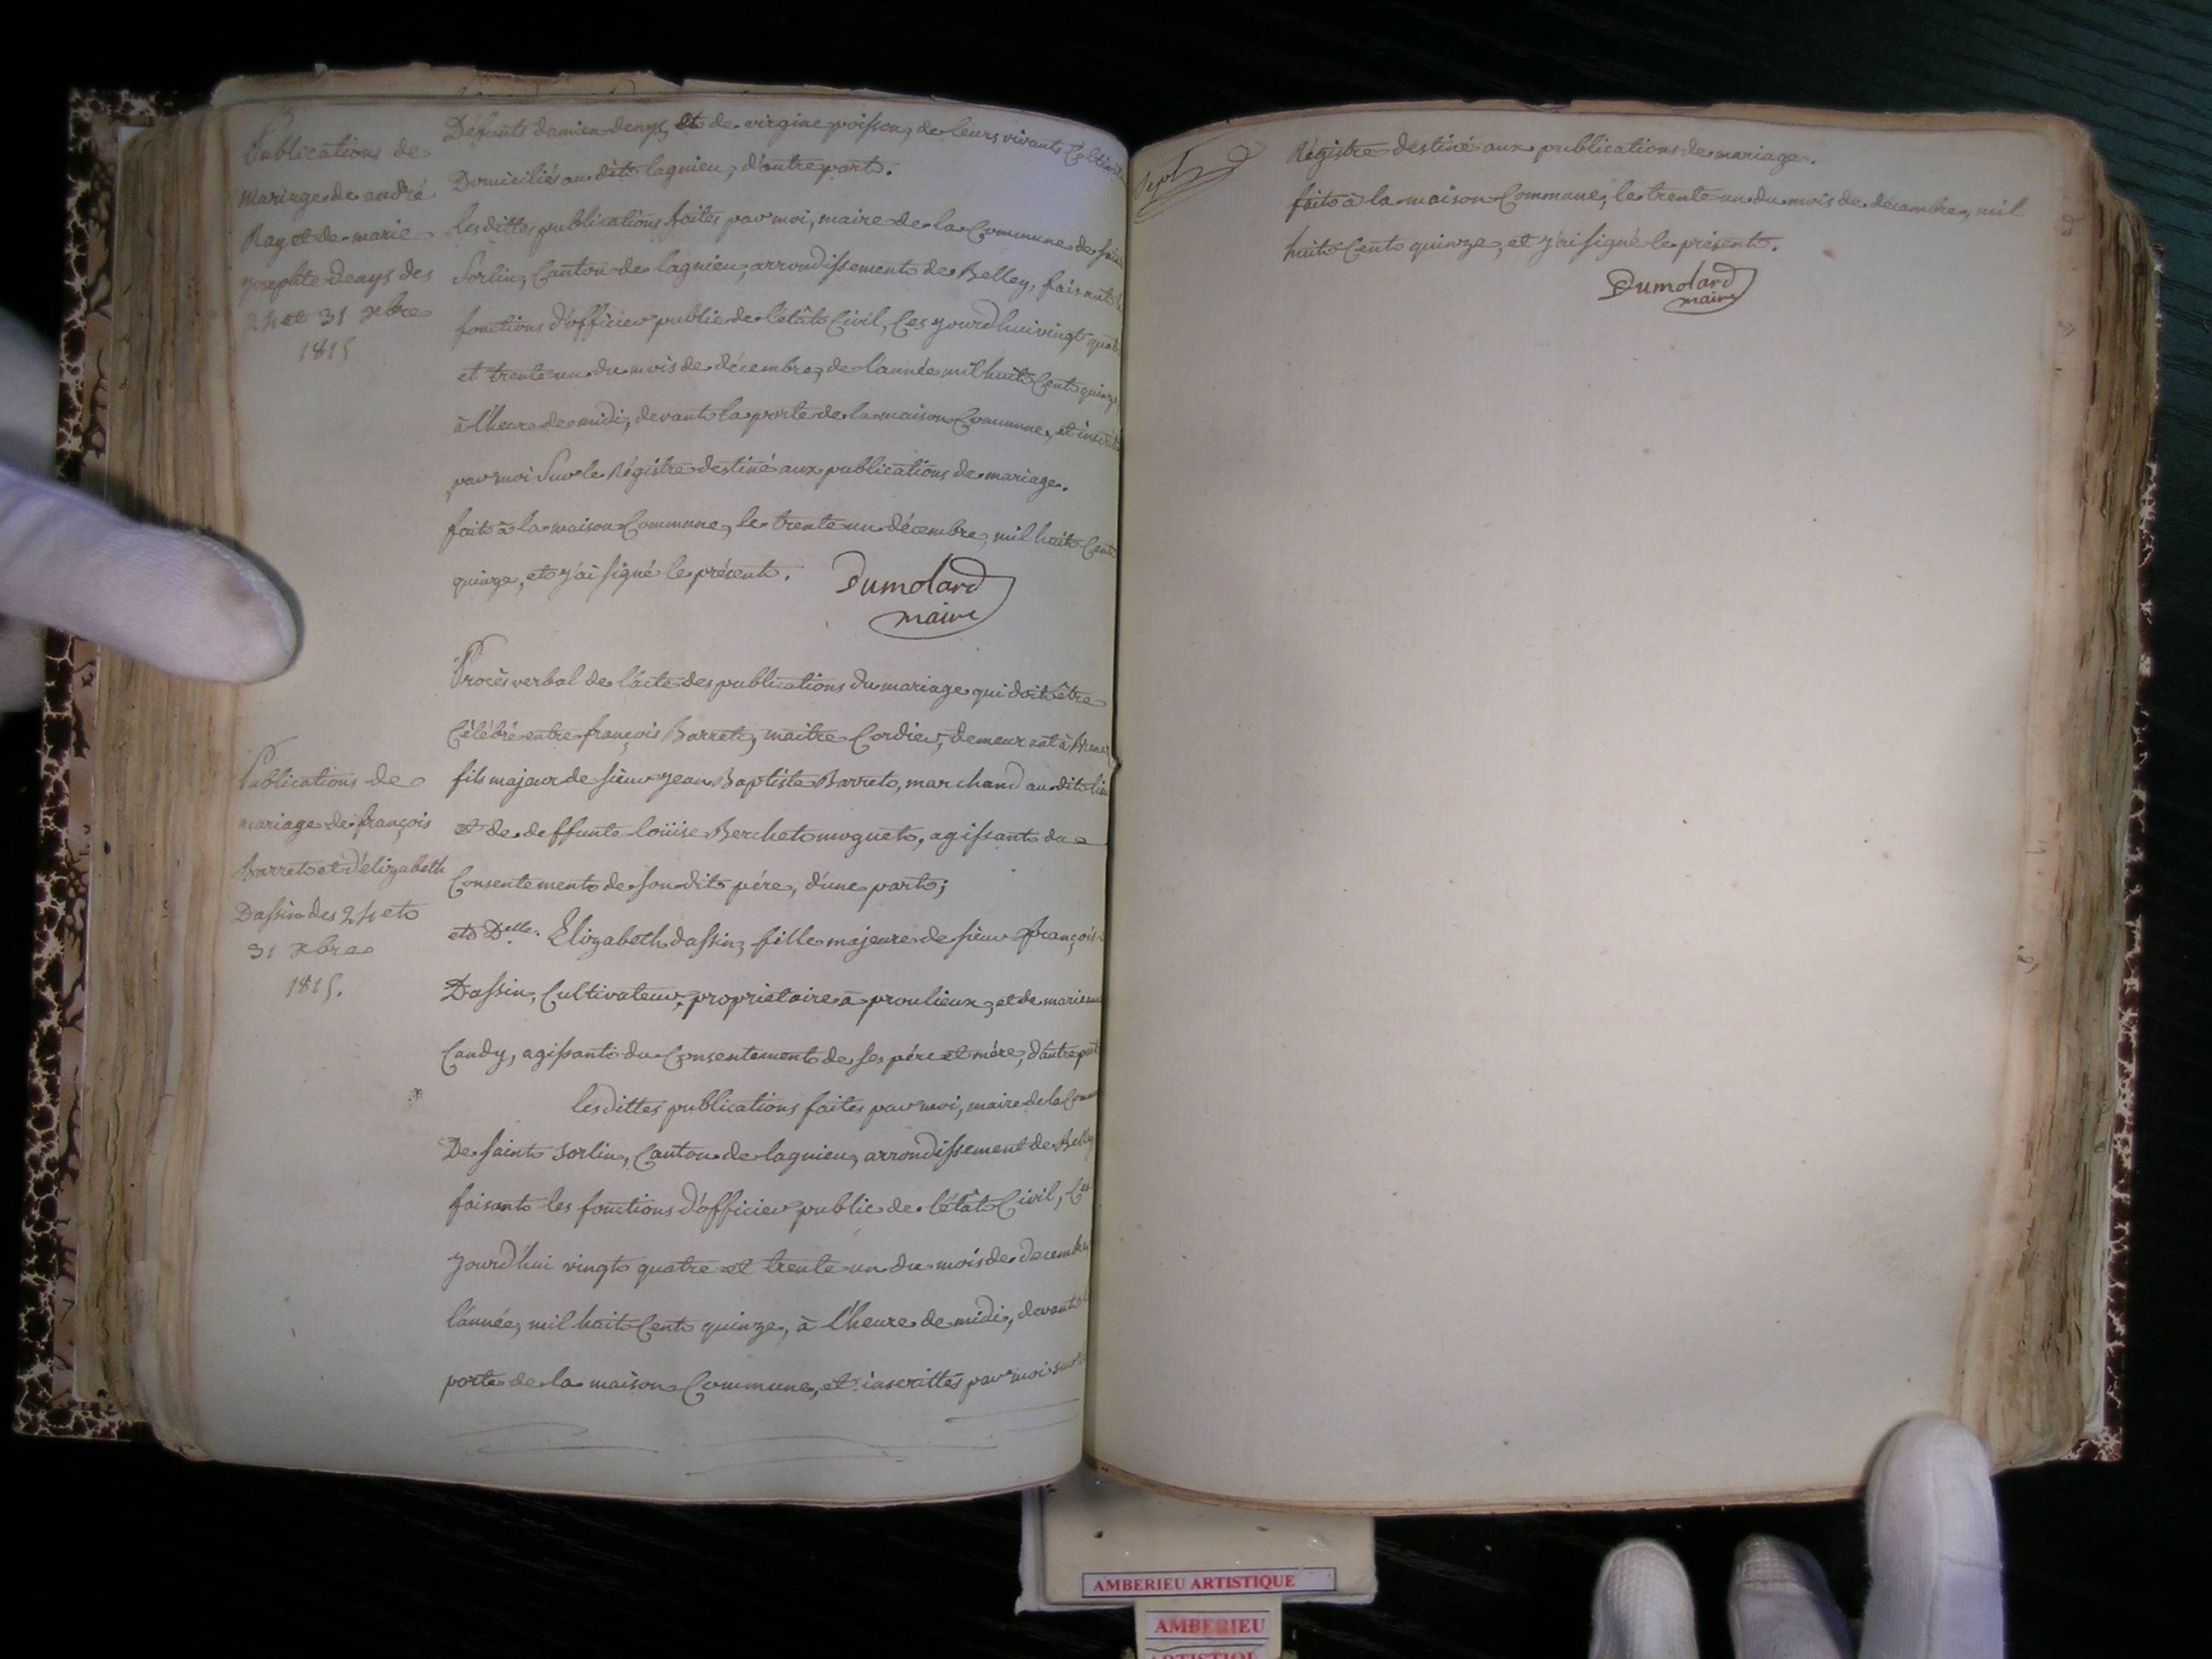 Publications de
mariage de andré
Ray et de marie
yosephte denys des
24 et 31 xbre
1815
Défunts damien denys, et de virgine poisson, de leurs vivants
Domiciliés au dit lagnieu, d'autre part.
les dittes publications faites par moi, maire de la Commune de
Sorlin, Canton de lagnieu, arrondissement de Belley, faisant
fonctions d'officier public de l'état Civil, Ces yourdhui vingt
et trente un du mois de décembre, de l'année mil huit Cent quinze
à l'heure de midi, devant la porte de la maison Commune, et
par moi Sur le Régistre destiné aux publications de mariage.
fait à la maison Commune, le trente un décembre, mil huit Cent
quinze, et j'ai signé le présent. Dumolard
maire
Publications de
mariage de françois
Barret et d'élizabeth
Dassin des 24 et
31 xbre
1815.
Procès verbal de l'acte des publications du mariage qui doit être
Célébré entre françois Barret, maitre Cordier, demeurant à
fils majeur de sieur jean Baptiste Barret, marchand au dit lieu
et de deffunte loüise Berchet mugnet, agissant du
Consentement de son dit pére, d'une part;
et Delle. Elizabeth dassin, fille majeure de sieur françois
Dassin, Cultivateur, propriétaire à proulieux, et de
Candy, agissant du Consentement de ses pére et mére, d'autre part
les dittes publications faites par moi, maire de la
De saint sorlin, Canton de lagnieu, arrondissement de
faisant les fonctions d'officier public de l'état Civil, Ces
yourd'hui vingt quatre et trente un du mois de decembre
l'année, mil huit Cent quinze, à l'heure de midi, devant
porte de la maison Commune, et inscrittes par moi sur
Régistre destiné aux publications de mariage.
fait à la maison Commune, le trente un du mois de décembre, mil
huit Cent quinze, et j'ai signé le présent.
Dumolard
maire
AMBERIEU ARTISTIQUE
AMBERIEU
ARTISTIQUE